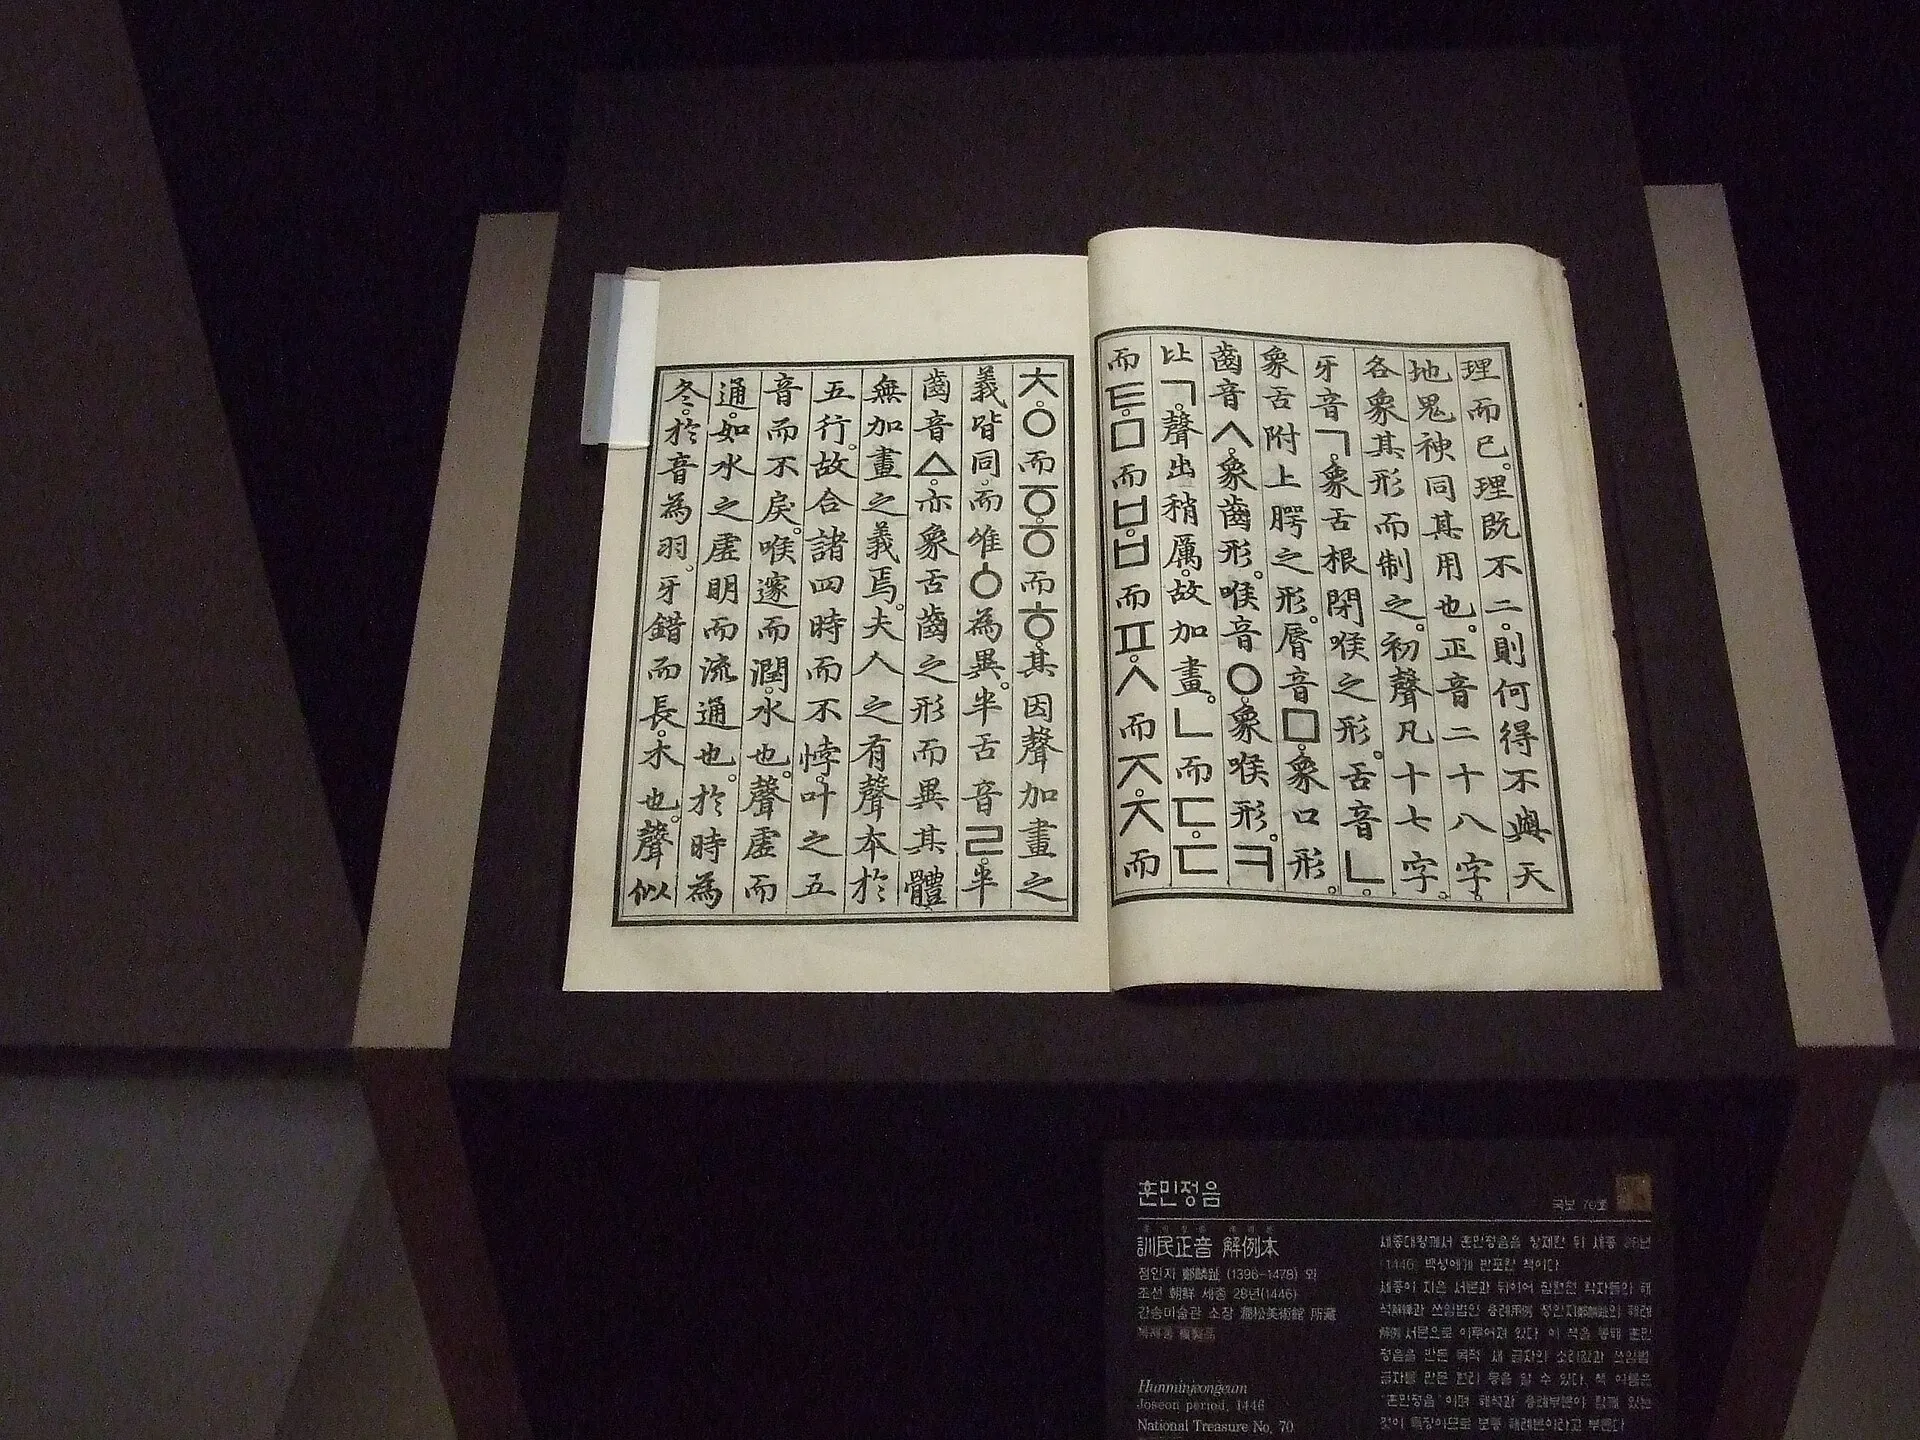 理而已。理既不二。則何得不與天
地鬼神同其用也。正音二十八字。
各象其形而制之。初聲凡十七字。
牙音ㄱ。象舌根閉喉之形。舌音ㄴ。
象舌附上腭之形。脣音ㅁ。象口形。
齒音ㅅ。象齒形。喉音ㅇ。象喉形。ㅋ
比ㄱ。聲出稍厲。故加畫。ㄴ而ㄷ。ㄷ
而ㅌ。ㅁ而ㅂ。ㅂ而ㅍ。ㅅ而ㅈ。ㅈ而
ㅊ。ㅇ而ㆆ。ㆆ而ㅎ。其因聲加畫之
義皆同。而唯ㆁ為異。半舌音ㄹ。半
齒音ㅿ。亦象舌齒之形而異其體。
無加畫之義焉。夫人之有聲本於
五行。故合諸四時而不悖。叶之五
音而不戾。喉邃而潤。水也。聲虛而
通。如水之虛明而流通也。於時為
冬。於音為羽。牙錯而長。木也。聲似
훈민정음
국보 70호
訓民正音 解例本
정인지 鄭麟趾 (1396-1478) 외
조선 朝鮮 세종 28년(1446)
간송미술관 소장 澗松美術館 所藏
복제품 複製品
Hunminjeongeum
Joseon period, 1446
National Treasure No. 70
세종대왕께서 훈민정음을 창제한 뒤 세종 28년
(1446) 백성에게 반포한 책이다.
세종이 지은 서문과 뒤이어 집현전 학자들의 해
석解釋과 쓰임법인 용례用例 정인지鄭麟趾의 해례
解例 서문으로 이루어져 있다. 이 책을 통해 훈민
정음을 만든 목적 새 글자의 소리값과 쓰임법
글자를 만든 원리 등을 알 수 있다. 책 이름은
"훈민정음"이며 해석과 용례부분이 함께 있는
것이 특징이므로 보통 해례본이라고 부른다